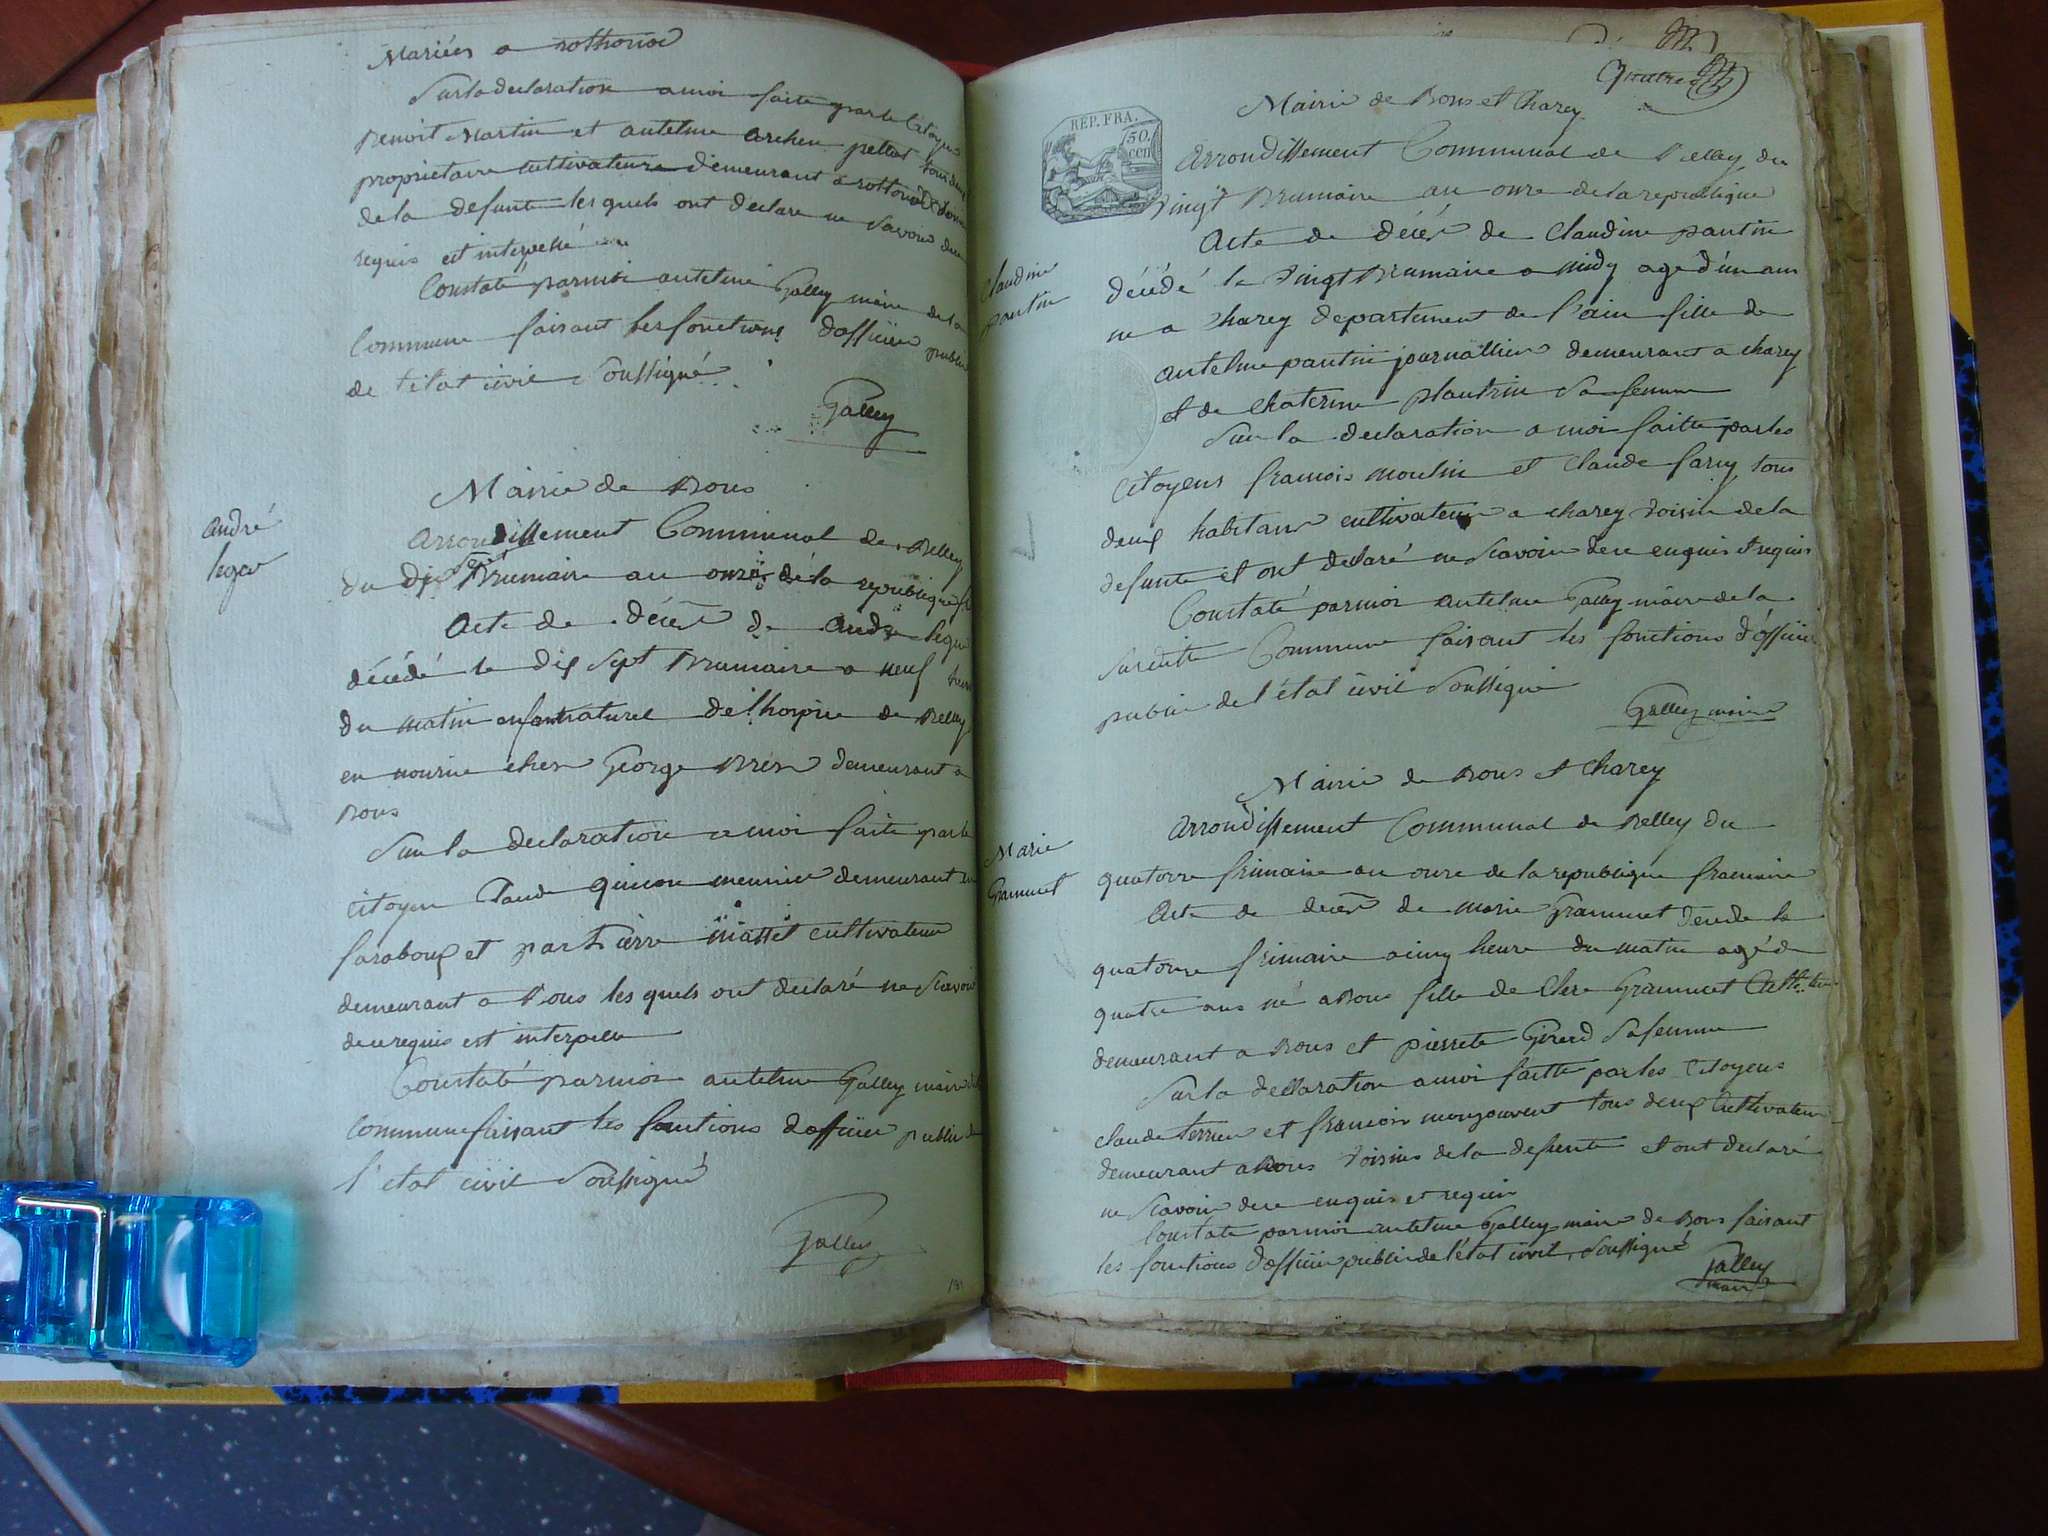 Mariées a rothonod
Sur la declaration a moi faite par le Citoyen
Benoit Martin et antelme archen pellat tous deux
proprietaire cultivateurs demeurant a rottonod voisin
de la defunte les quels ont declare ne Savoir
requis est interpellé
Constaté par moi antelme Galley maire de la
Commune faisant les fonctions d'officier public
de l'état civil Soussigné
Galley
Mairie de Bons
andré
leger
arrondissement Communal de Belley
du dix sept Brumaire an onze de la republique
Acte de décés de andre leger
décédé le dix Sept Brumaire a neuf heure
du matin enfant naturel de l'hospice de Belley
en nourice ches George Bres demeurant a
Bons
Sur la declaration a moi faite par le
Citoyen Claude quinson meunier demeurant en
faraboux et par Pierre massel cultivateur
demeurant a Bons les quels ont declaré ne Scavoir
de ce requis est interpelle
Constaté par moi antelme Galley maire de la
Commune faisant les fonctions d'officier public de
l'etat civil Soussigné
Galley
191
quatre
REP. FRA.
50.
cen
Mairie de Bons et Charey
Arrondissement Communal de Belley du
Vingt Brumaire an onze de la republique
Claudine
pantin
Acte de décés de Claudine pantin
décédé le Vingt Brumaire a midy agé d'un an
ne a Charey departement de l'ain fille de
antelme pantin journallier demeurant a charey
et de Chaterine plantin Sa femme
Sur la declaration a moi faitte par les
Citoyens francois moulin et Claude farcy tous
deux habitans cultivateur a charey voisin de la
defunte et ont declaré ne Scavoir de ce enquis et requis
Constaté par moi antelme Galley maire de la
Susditte Commune faisant les fonctions d'officier
public de l'état civil Soussigné
Galley maire
Mairie de Bons et Charey
Arrondissement Communal de Belley du
Marie
Grammet
quatorze frimaire an onze de la republique francaise
Acte de deces de marie Grammet decede le
quatorze frimaire a cinq heure du matin agé de
quatre ans né a Bons fille de Grammet
demeurant a Bons et pierrete Girerd Sa femme
Sur la declaration a moi faitte par les Citoyens
Claude terrier et francois monjouvent tous deux Cultivateur
demeurant a Bons Voisins de la defunte et ont declaré
ne Scavoir de ce enquis et requis
Constate par moi antelme Galley maire de Bons faisant
les fonctions d'officier public de l'état civil Soussigné
Galley
maire